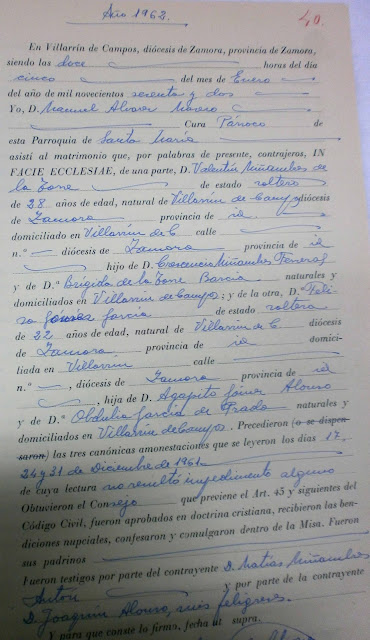 Año 1962.
40.
En Villarrín de Campos, diócesis de Zamora, provincia de Zamora,
siendo las doce horas del día
cinco del mes de Enero
del año de mil novecientos sesenta y dos
Yo, D. Manuel Alvarez Cura Párroco de
esta Parroquia de Santa María
asistí al matrimonio que, por palabras de presente, contrajeros, IN
FACIE ECCLESIAE, de una parte, D. Valentín Miñambres de
la Torre de estado soltero
de 28 años de edad, natural de Villarrín de Campos diócesis
de Zamora provincia de id
domiciliado en Villarrín de C calle
n.º — diócesis de Zamora provincia de id
hijo de D. Crescencio Miñambres Ferreras
y de D.ª Brígida de la Torre Barcia naturales y
domiciliados en Villarrín de Campos; y de la otra, D.ª Feli-
sa García de estado soltera
de 22 años de edad, natural de Villarrín de C diócesis
de Zamora provincia de id domici-
liada en Villarrín calle
n.º —, diócesis de Zamora provincia de id
, hija de D. Agapito Alonso
y de D.ª Obdulia García de Prada naturales y
domiciliados en Villarrín de Campos. Precedieron (o se dispen-
saron) las tres canónicas amonestaciones que se leyeron los días 17,
24 y 31 de Diciembre de 1961
de cuya lectura no resultó impedimento alguno
Obtuvieron el Consejo que previene el Art. 45 y siguientes del
Código Civil, fueron aprobados en doctrina cristiana, recibieron las ben-
diciones nupciales, confesaron y comulgaron dentro de la Misa. Fueron
sus padrinos
Fueron testigos por parte del contrayente D. Matías Miñambres
Antón y por parte de la contrayente
D. Joaquín Alonso, mis feligreses.
Y para que conste lo firmo, fecha ut supra.